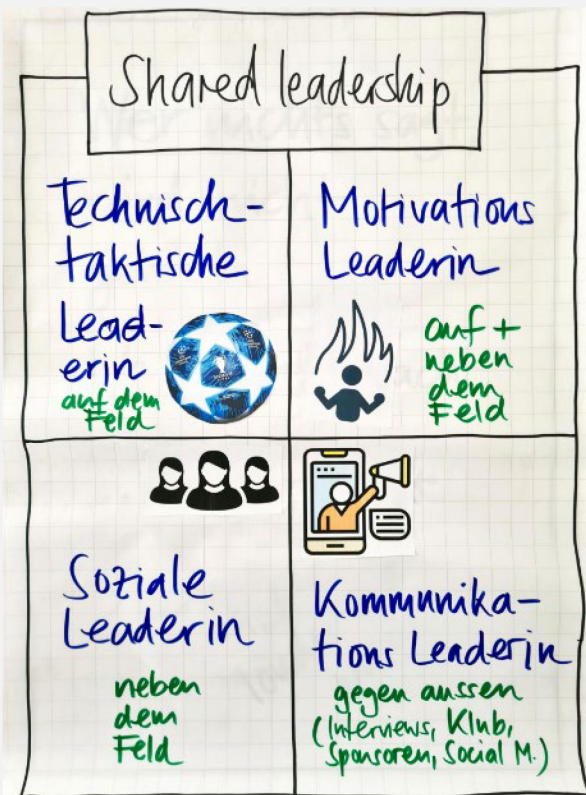 Shared leadership
Technisch-
taktische
Lead-
erin
auf dem
Feld
Motivations
Leaderin
auf +
neben
dem
Feld
Soziale
Leaderin
neben
dem
Feld
Kommunika-
tions Leaderin
gegen aussen
(Interviews, Klub,
Sponsoren, Social M.)